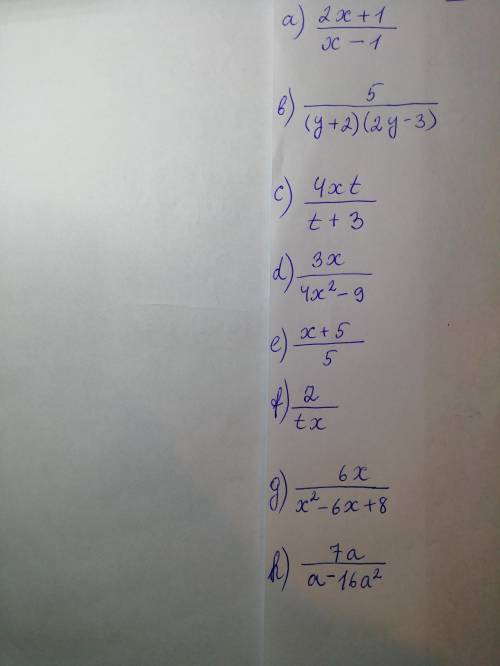 a) (2x+1)/(x-1)
b) 5/((y+2)(2y-3))
c) 4xt/(t+3)
d) 3x/(4x²-9)
e) (x+5)/5
f) 2/(tx)
g) 6x/(x²-6x+8)
h) 7a/(a-16a²)